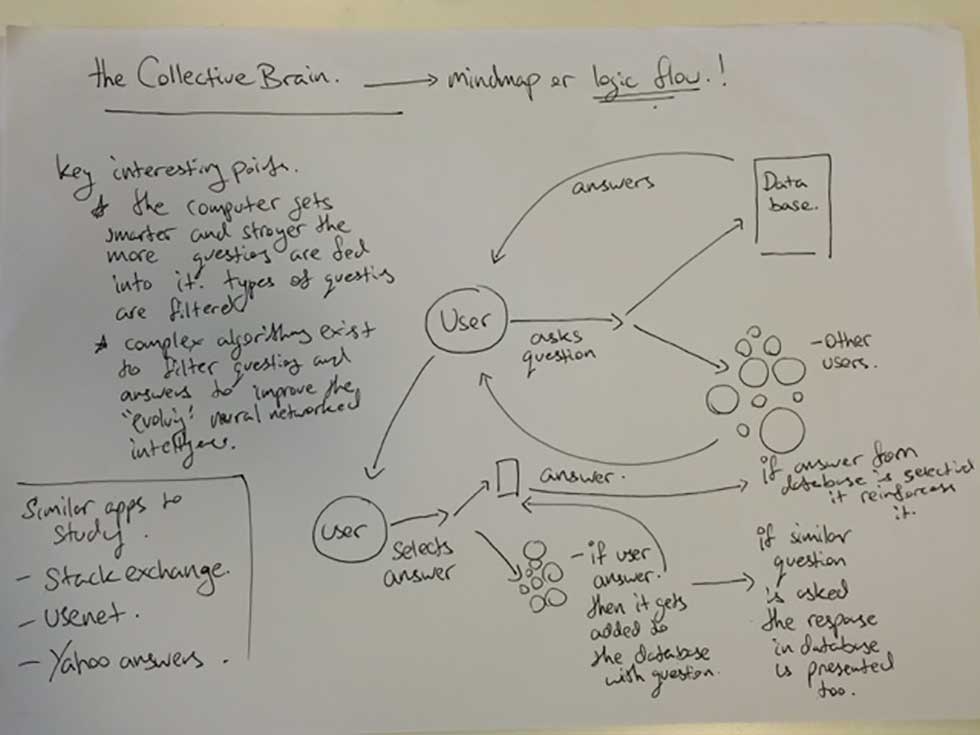 the Collective Brain. → mindmap or logic flow.!
key interesting points.
* the computer gets
smarter and stronger the
more questions are fed
into it. types of questions
are filtered
* complex algorithms exist
to filter questions and
answers to improve the
"evolving" neural networked
intelligence.
Similar apps to
study.
- Stack exchange.
- Usenet.
- Yahoo answers.
answers
Data
base.
User
asks
question
- other
users.
answer.
if answer from
database is selected
it reinforces
it.
user
Selects
answer
- if user
answer.
then it gets
added to
the database
with question.
if similar
question
is asked
the response
in database
is presented
too.